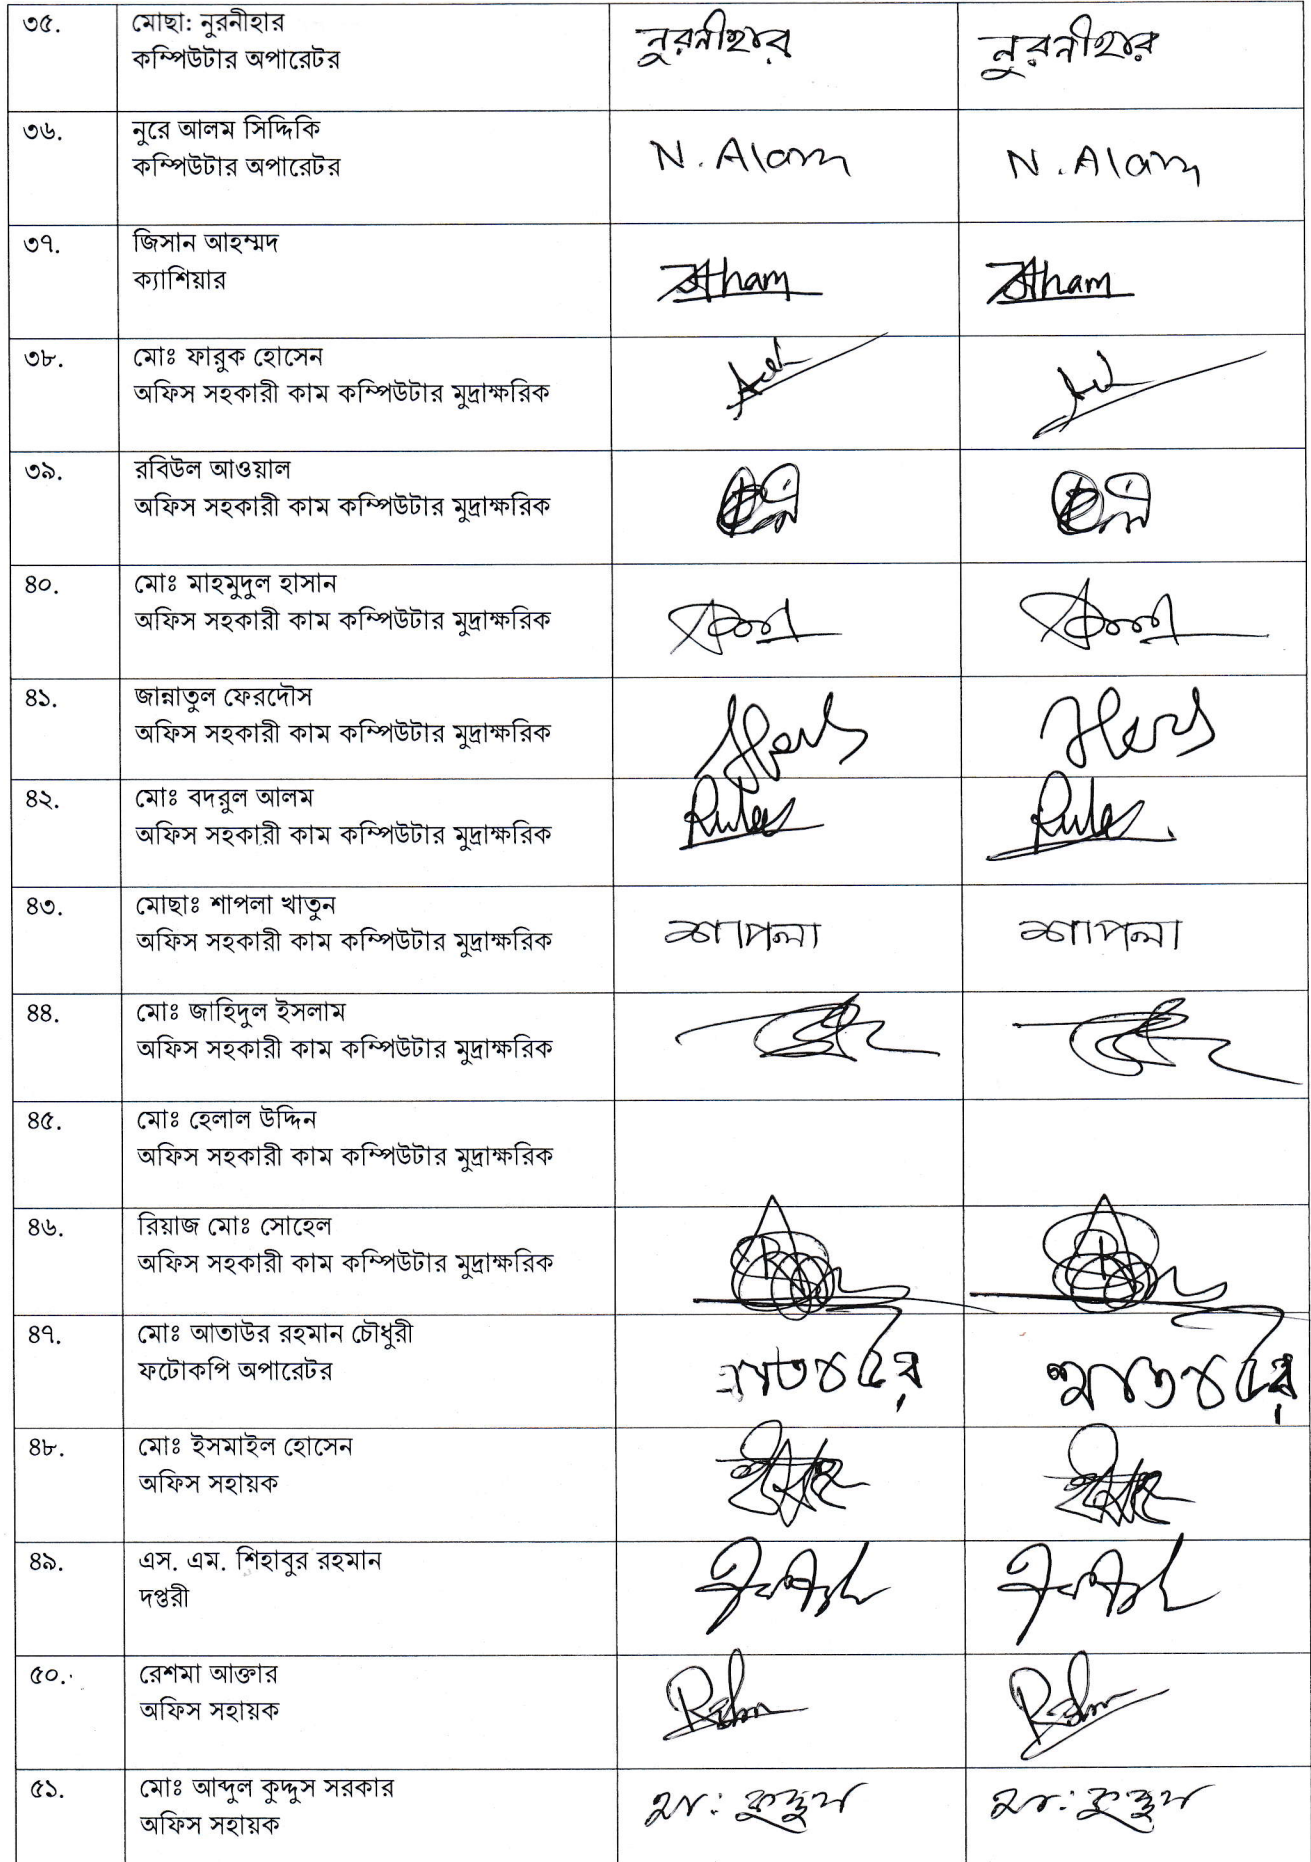 ৩৫.
মোছা: নুরনীহার
কম্পিউটার অপারেটর
নুরনীহার
নুরনীহার
৩৬.
নুরে আলম সিদ্দিকি
কম্পিউটার অপারেটর
N. Alam
N. Alam
৩৭.
জিসান আহম্মদ
ক্যাশিয়ার
৩৮.
মোঃ ফারুক হোসেন
অফিস সহকারী কাম কম্পিউটার মুদ্রাক্ষরিক
৩৯.
রবিউল আওয়াল
অফিস সহকারী কাম কম্পিউটার মুদ্রাক্ষরিক
৪০.
মোঃ মাহমুদুল হাসান
অফিস সহকারী কাম কম্পিউটার মুদ্রাক্ষরিক
৪১.
জান্নাতুল ফেরদৌস
অফিস সহকারী কাম কম্পিউটার মুদ্রাক্ষরিক
৪২.
মোঃ বদরুল আলম
অফিস সহকারী কাম কম্পিউটার মুদ্রাক্ষরিক
৪৩.
মোছাঃ শাপলা খাতুন
অফিস সহকারী কাম কম্পিউটার মুদ্রাক্ষরিক
শাপলা
শাপলা
৪৪.
মোঃ জাহিদুল ইসলাম
অফিস সহকারী কাম কম্পিউটার মুদ্রাক্ষরিক
৪৫.
মোঃ হেলাল উদ্দিন
অফিস সহকারী কাম কম্পিউটার মুদ্রাক্ষরিক
৪৬.
রিয়াজ মোঃ সোহেল
অফিস সহকারী কাম কম্পিউটার মুদ্রাক্ষরিক
৪৭.
মোঃ আতাউর রহমান চৌধুরী
ফটোকপি অপারেটর
৪৮.
মোঃ ইসমাইল হোসেন
অফিস সহায়ক
৪৯.
এস. এম. শিহাবুর রহমান
দপ্তরী
৫০.
রেশমা আক্তার
অফিস সহায়ক
৫১.
মোঃ আব্দুল কুদ্দুস সরকার
অফিস সহায়ক